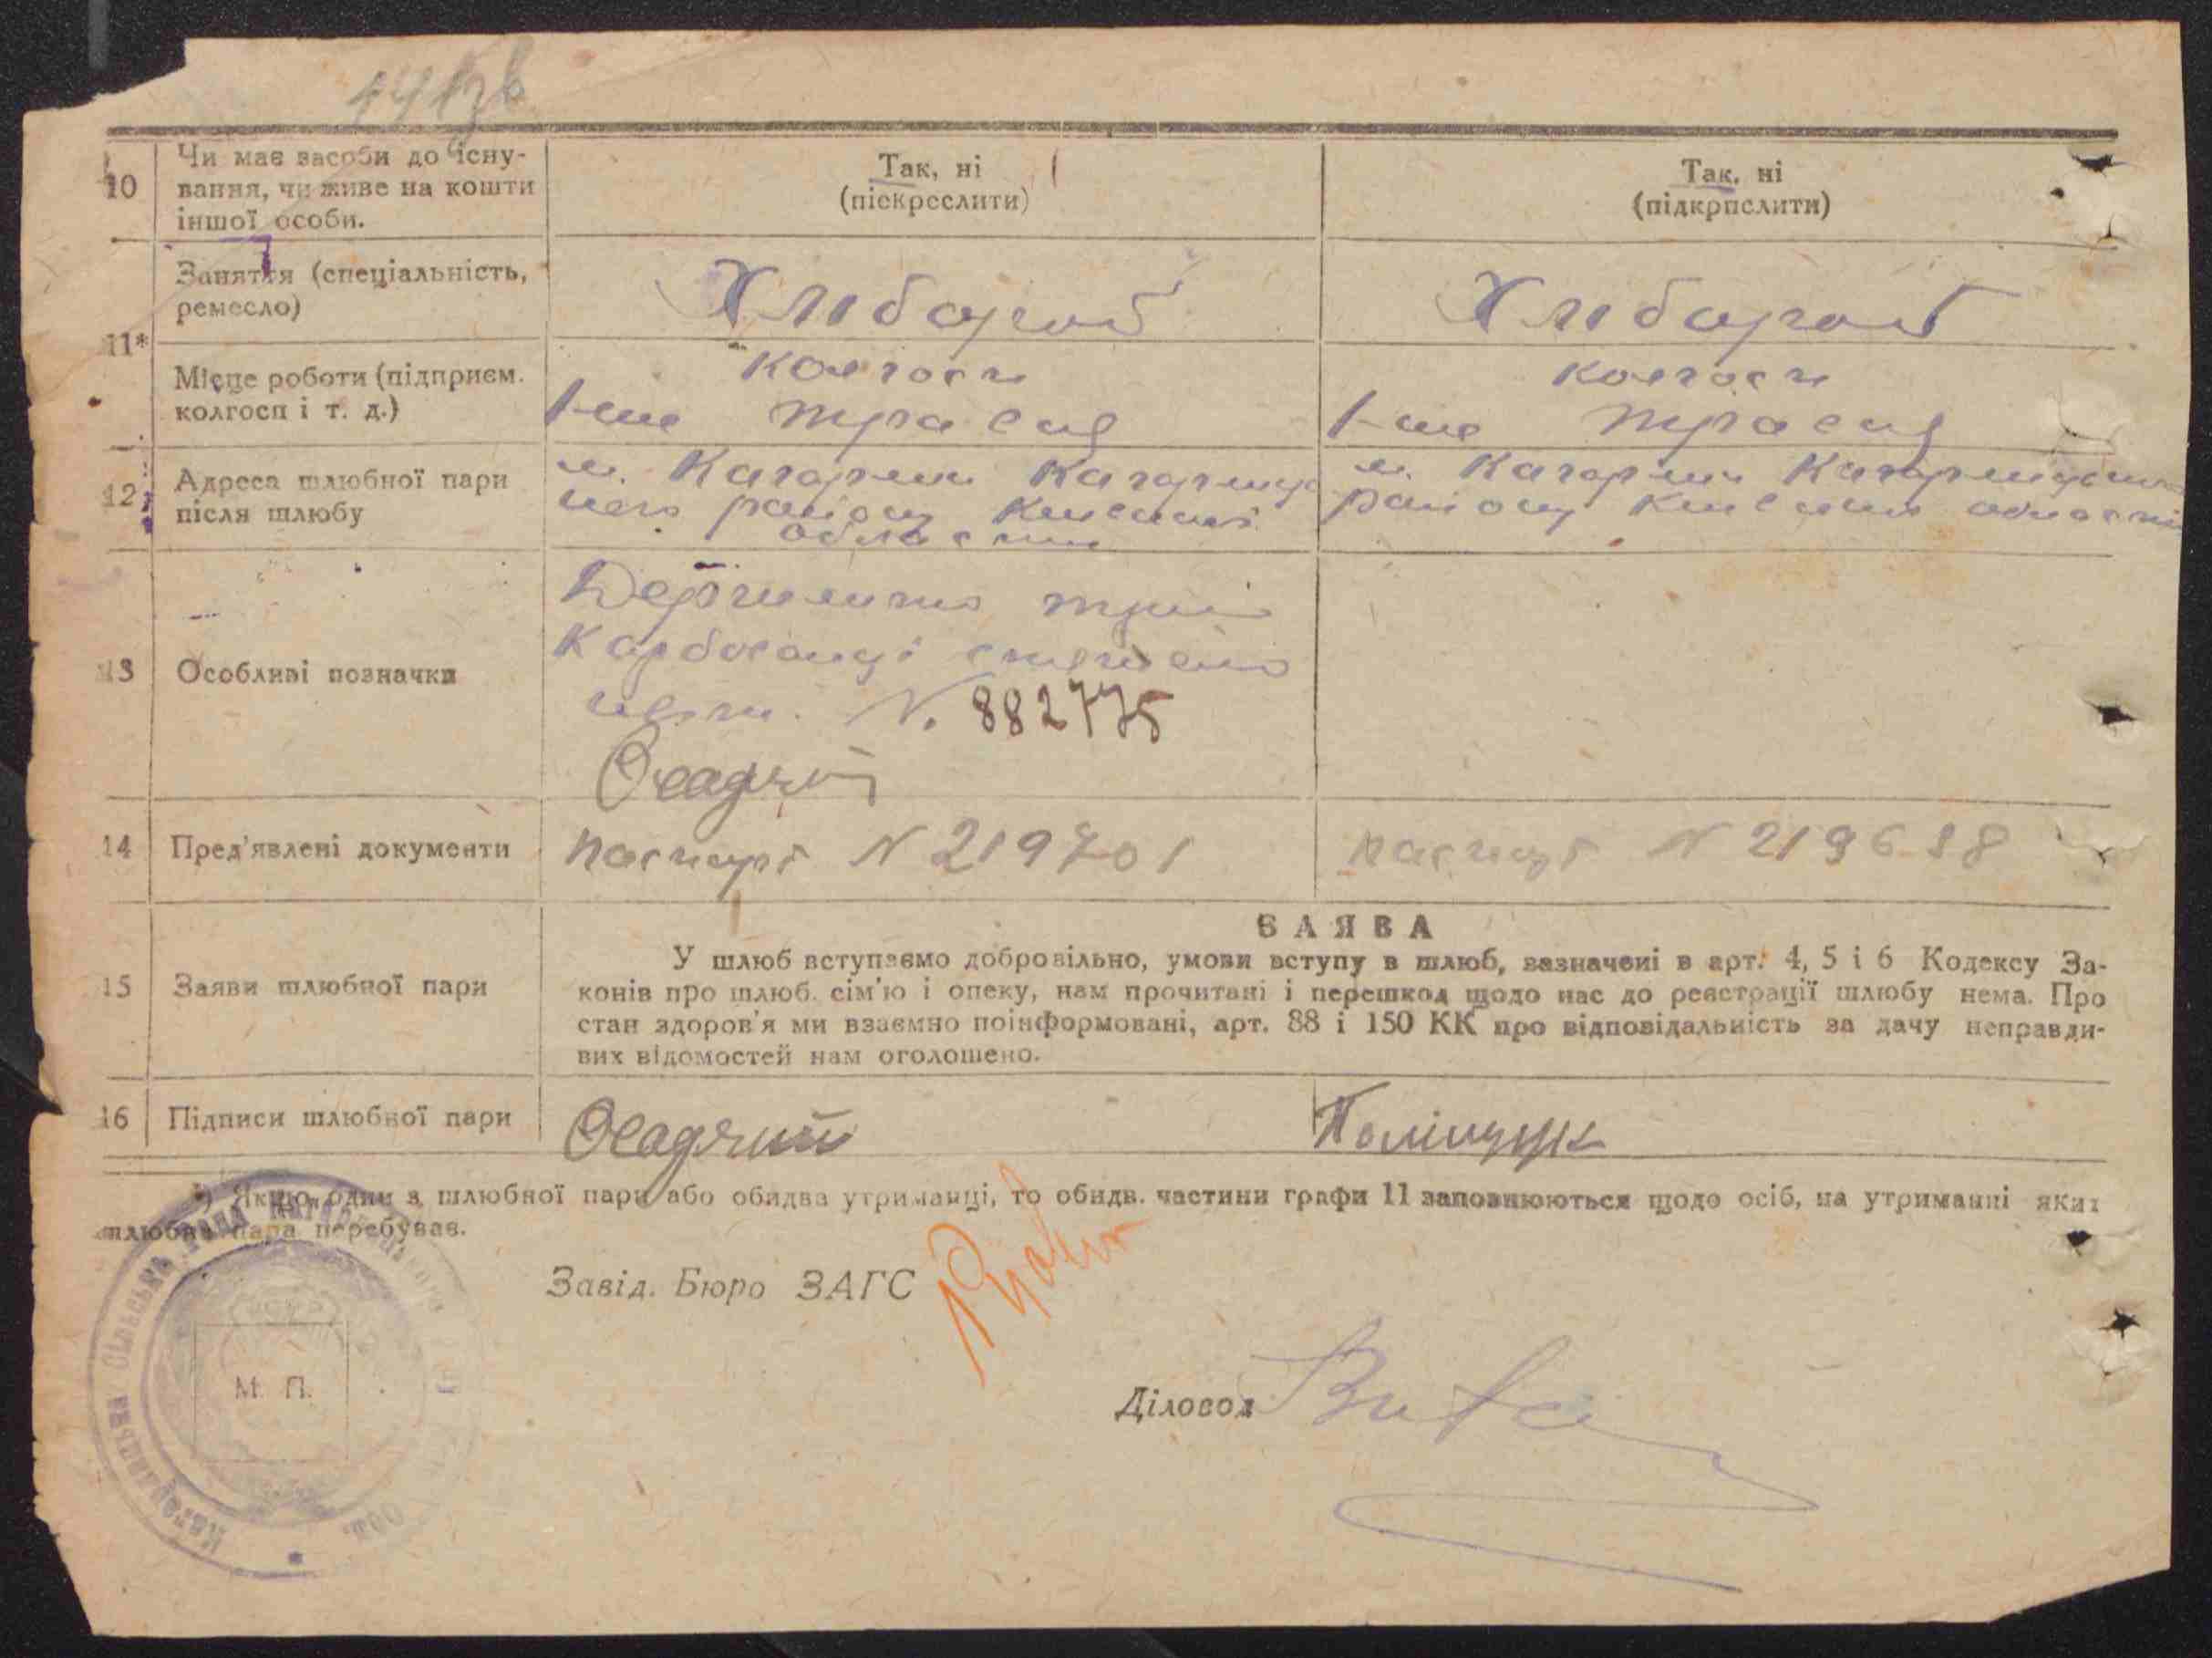 10
Чи має засоби до існу-
вання, чи живе на кошти
іншої особи.
Так, ні
(піскреслити)
Так, ні
(підкрпслити)
11*
Заняття (спеціальність,
ремесло)
Хлібороб
Хлібороб
Місце роботи (підприєм.
колгосп і т. д.)
колгосп
1-ше травня
колгосп
1-ше травня
12
Адреса шлюбної пари
після шлюбу
м. Кагарлик Кагарлиць
кого району Київської
області
м. Кагарлик Кагарлицького
району Київської області
13
Особливі позначки
Держмито три
карбованці стягнено
квит. № 882775
Осадчий
14
Пред'явлені документи
паспорт № 219701
паспорт № 219698
15
Заяви шлюбної пари
ЗАЯВА
У шлюб вступаємо добровільно, умови вступу в шлюб, зазначені в арт. 4, 5 і 6 Кодексу За-
конів про шлюб. сім'ю і опеку, нам прочитані і перешкод щодо нас до реєстрації шлюбу нема. Про
стан здоров'я ми взаємно поінформовані, арт. 88 і 150 КК про відповідальність за дачу неправди-
вих відомостей нам оголошено.
16
Підписи шлюбної пари
Осадчий
Поліщук
*) Якщо один з шлюбної пари або обидва утриманці, то обидв. частини графи 11 заповнюються щодо осіб, на утриманні яких
шлюбна пара перебуває.
Завід. Бюро ЗАГС
М. П.
Діловод
Кагарлицька сільська рада